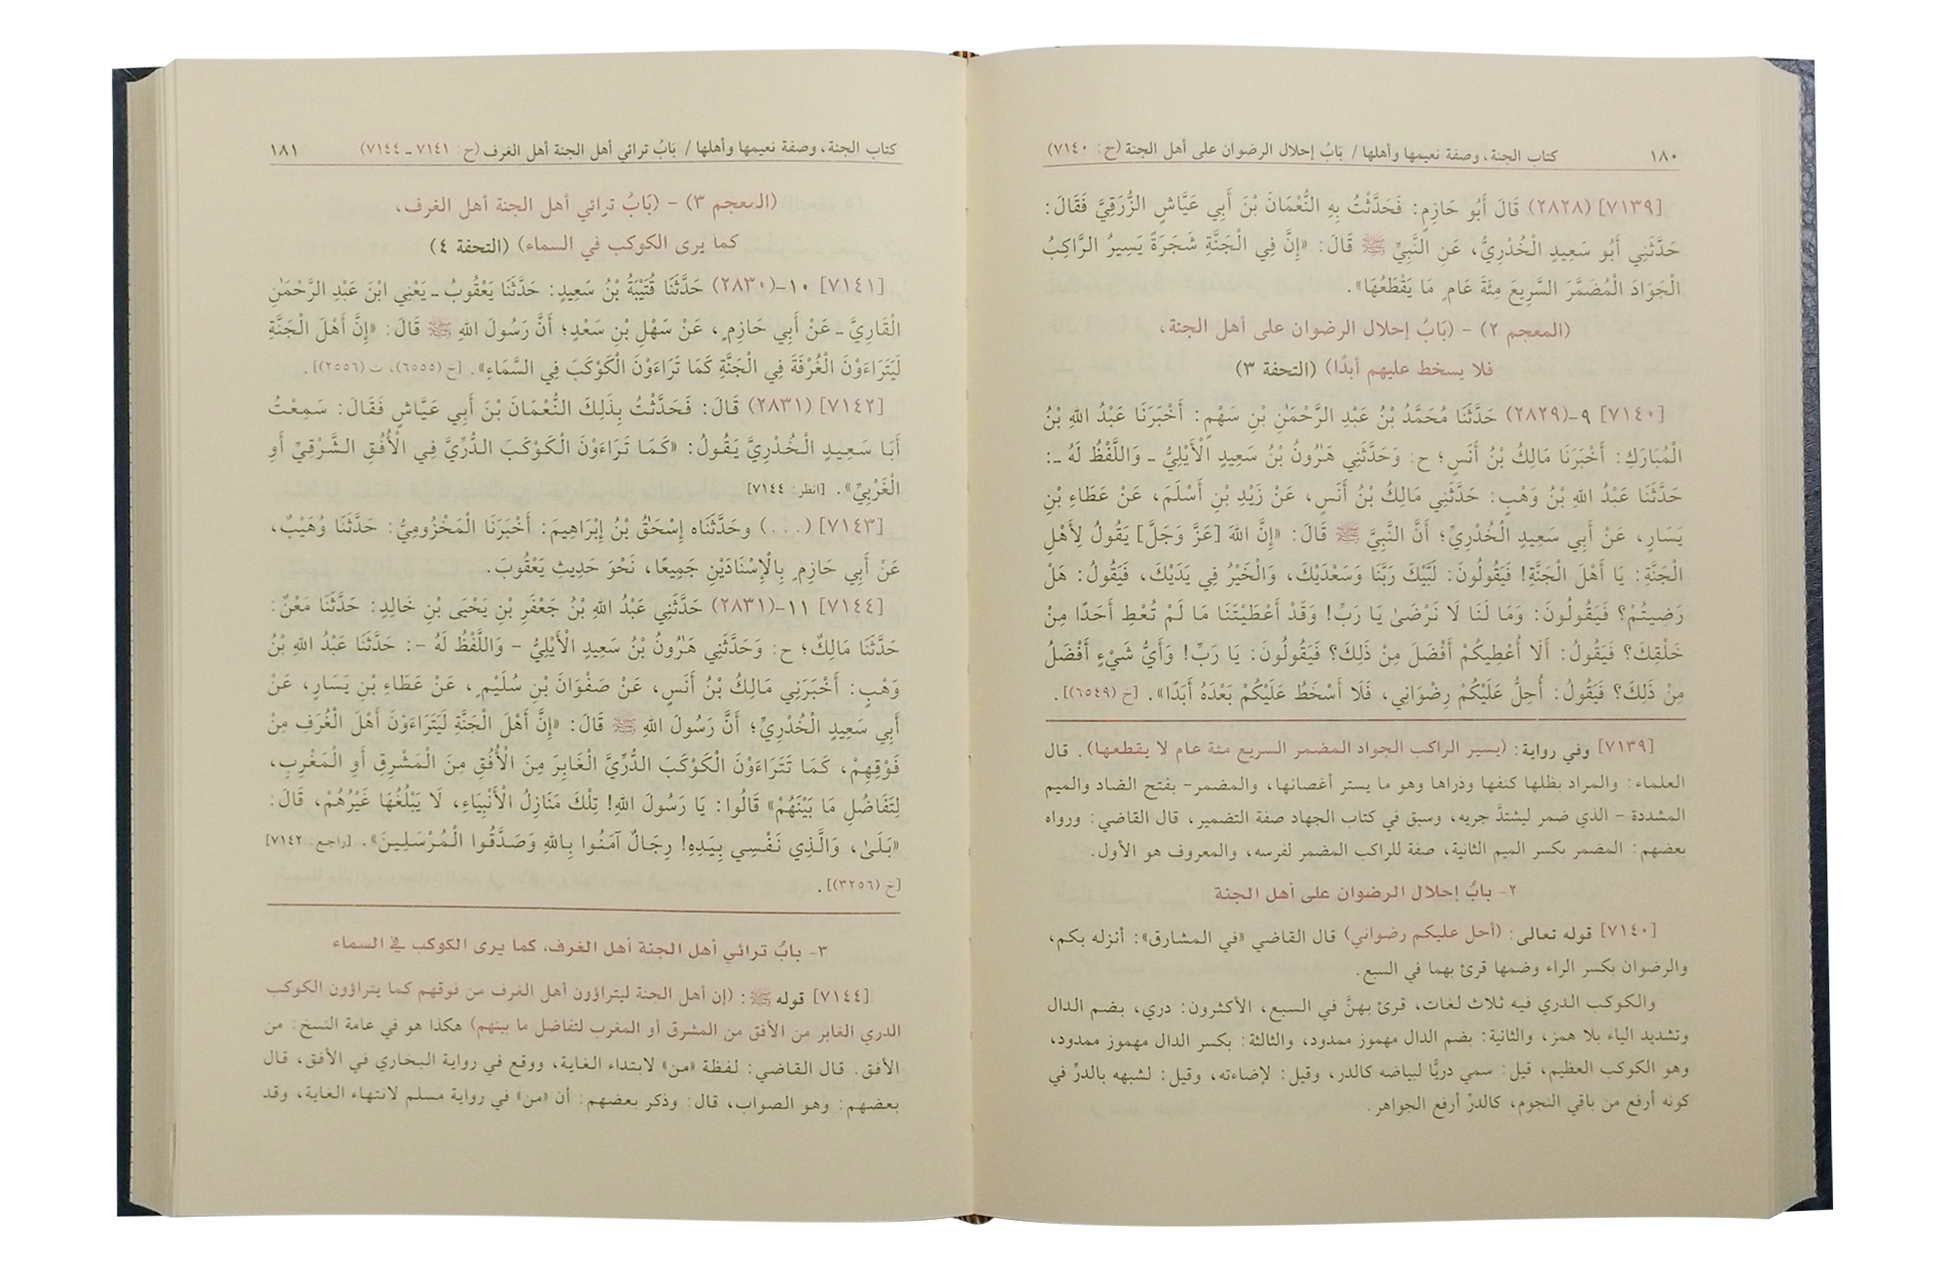 ١٨٠ كتاب الجنة، وصفة نعيمها وأهلها / بَابُ إحلال الرضوان على أهل الجنة (ح: ٧١٤٠)
[٧١٣٩] (٢٨٢٨) قَالَ أَبُو حَازِمٍ: فَحَدَّثْتُ بِهِ النُّعْمَانَ بْنَ أَبِي عَيَّاشٍ الزُّرَقِيَّ فَقَالَ:
حَدَّثَنِي أَبُو سَعِيدٍ الْخُدْرِيُّ، عَنِ النَّبِيِّ ﷺ قَالَ: «إِنَّ فِي الْجَنَّةِ شَجَرَةً يَسِيرُ الرَّاكِبُ
الْجَوَادَ الْمُضَمَّرَ السَّرِيعَ مِئَةَ عَامٍ مَا يَقْطَعُهَا».
(المعجم ٢) - (بَابُ إحلال الرضوان على أهل الجنة،
فلا يسخط عليهم أبدًا) (التحفة ٣)
[٧١٤٠] ٩-(٢٨٢٩) حَدَّثَنَا مُحَمَّدُ بْنُ عَبْدِ الرَّحْمَٰنِ بْنِ سَهْمٍ: أَخْبَرَنَا عَبْدُ اللهِ بْنُ
الْمُبَارَكِ: أَخْبَرَنَا مَالِكُ بْنُ أَنَسٍ؛ ح: وَحَدَّثَنِي هَرُونُ بْنُ سَعِيدٍ الْأَيْلِيُّ ـ وَاللَّفْظُ لَهُ ـ:
حَدَّثَنَا عَبْدُ اللهِ بْنُ وَهْبٍ: حَدَّثَنِي مَالِكُ بْنُ أَنَسٍ، عَنْ زَيْدِ بْنِ أَسْلَمَ، عَنْ عَطَاءِ بْنِ
يَسَارٍ، عَنْ أَبِي سَعِيدٍ الْخُدْرِيِّ؛ أَنَّ النَّبِيَّ ﷺ قَالَ: «إِنَّ اللهَ [عَزَّ وَجَلَّ] يَقُولُ لِأَهْلِ
الْجَنَّةِ: يَا أَهْلَ الْجَنَّةِ! فَيَقُولُونَ: لَبَّيْكَ رَبَّنَا وَسَعْدَيْكَ، وَالْخَيْرُ فِي يَدَيْكَ، فَيَقُولُ: هَلْ
رَضِيتُمْ؟ فَيَقُولُونَ: وَمَا لَنَا لَا نَرْضَىٰ يَا رَبِّ! وَقَدْ أَعْطَيْتَنَا مَا لَمْ تُعْطِ أَحَدًا مِنْ
خَلْقِكَ؟ فَيَقُولُ: أَلَا أُعْطِيكُمْ أَفْضَلَ مِنْ ذَلِكَ؟ فَيَقُولُونَ: يَا رَبِّ! وَأَيُّ شَيْءٍ أَفْضَلُ
مِنْ ذَلِكَ؟ فَيَقُولُ: أُحِلُّ عَلَيْكُمْ رِضْوَانِي، فَلَا أَسْخَطُ عَلَيْكُمْ بَعْدَهُ أَبَدًا». [خ (٦٥٤٩)].
[٧١٣٩] وفي رواية: (يسير الراكب الجواد المضمر السريع مئة عام لا يقطعها). قال
العلماء: والمراد بظلها كنفها وذراها وهو ما يستر أغصانها، والمضمر- بفتح الضاد والميم
المشددة - الذي ضمر ليشتدَّ جريه، وسبق في كتاب الجهاد صفة التضمير، قال القاضي: ورواه
بعضهم: المضمر بكسر الميم الثانية، صفة للراكب المضمر لفرسه، والمعروف هو الأول.
٢- بابُ إحلال الرضوان على أهل الجنة
[٧١٤٠] قوله تعالى: (أحل عليكم رضواني) قال القاضي «في المشارق»: أنزله بكم،
والرضوان بكسر الراء وضمها قرئ بهما في السبع.
والكوكب الدري فيه ثلاث لغات، قرئ بهنَّ في السبع، الأكثرون: دري، بضم الدال
وتشديد الياء بلا همز، والثانية: بضم الدال مهموز ممدود، والثالثة: بكسر الدال مهموز ممدود،
وهو الكوكب العظيم، قيل: سمي دريًّا لبياضه كالدر، وقيل: لإضاءته، وقيل: لشبهه بالدرِّ في
كونه أرفع من باقي النجوم، كالدرِّ أرفع الجواهر.
كتاب الجنة، وصفة نعيمها وأهلها / بَابُ ترائي أهل الجنة أهل الغرف (ح: ٧١٤١ ـ ٧١٤٤) ١٨١
(المعجم ٣) - (بَابُ ترائي أهل الجنة أهل الغرف،
كما يرى الكوكب في السماء) (التحفة ٤)
[٧١٤١] ١٠-(٢٨٣٠) حَدَّثَنَا قُتَيْبَةُ بْنُ سَعِيدٍ: حَدَّثَنَا يَعْقُوبُ ـ يَعْنِي ابْنَ عَبْدِ الرَّحْمَٰنِ
الْقَارِيَّ ـ عَنْ أَبِي حَازِمٍ، عَنْ سَهْلِ بْنِ سَعْدٍ؛ أَنَّ رَسُولَ اللهِ ﷺ قَالَ: «إِنَّ أَهْلَ الْجَنَّةِ
لَيَتَرَاءَوْنَ الْغُرْفَةَ فِي الْجَنَّةِ كَمَا تَرَاءَوْنَ الْكَوْكَبَ فِي السَّمَاءِ». [خ (٦٥٥٥)، ت (٢٥٥٦)].
[٧١٤٢] (٢٨٣١) قَالَ: فَحَدَّثْتُ بِذَلِكَ النُّعْمَانَ بْنَ أَبِي عَيَّاشٍ فَقَالَ: سَمِعْتُ
أَبَا سَعِيدٍ الْخُدْرِيَّ يَقُولُ: «كَمَا تَرَاءَوْنَ الْكَوْكَبَ الدُّرِّيَّ فِي الْأُفُقِ الشَّرْقِيِّ أَوِ
الْغَرْبِيِّ». [انظر: ٧١٤٤]
[٧١٤٣] (...) وحَدَّثَنَاه إِسْحَقُ بْنُ إِبْرَاهِيمَ: أَخْبَرَنَا الْمَخْزُومِيُّ: حَدَّثَنَا وُهَيْبٌ،
عَنْ أَبِي حَازِمٍ بِالْإِسْنَادَيْنِ جَمِيعًا، نَحْوَ حَدِيثِ يَعْقُوبَ.
[٧١٤٤] ١١-(٢٨٣١) حَدَّثَنِي عَبْدُ اللهِ بْنُ جَعْفَرِ بْنِ يَحْيَى بْنِ خَالِدٍ: حَدَّثَنَا مَعْنٌ:
حَدَّثَنَا مَالِكٌ؛ ح: وَحَدَّثَنِي هَرُونُ بْنُ سَعِيدٍ الْأَيْلِيُّ - وَاللَّفْظُ لَهُ -: حَدَّثَنَا عَبْدُ اللهِ بْنُ
وَهْبٍ: أَخْبَرَنِي مَالِكُ بْنُ أَنَسٍ، عَنْ صَفْوَانَ بْنِ سُلَيْمٍ، عَنْ عَطَاءِ بْنِ يَسَارٍ، عَنْ
أَبِي سَعِيدٍ الْخُدْرِيِّ؛ أَنَّ رَسُولَ اللهِ ﷺ قَالَ: «إِنَّ أَهْلَ الْجَنَّةِ لَيَتَرَاءَوْنَ أَهْلَ الْغُرَفِ مِنْ
فَوْقِهِمْ، كَمَا تَتَرَاءَوْنَ الْكَوْكَبَ الدُّرِّيَّ الْغَابِرَ مِنَ الْأُفُقِ مِنَ الْمَشْرِقِ أَوِ الْمَغْرِبِ،
لِتَفَاضُلِ مَا بَيْنَهُمْ» قَالُوا: يَا رَسُولَ اللهِ! تِلْكَ مَنَازِلُ الْأَنْبِيَاءِ، لَا يَبْلُغُهَا غَيْرُهُمْ، قَالَ:
«بَلَىٰ، وَالَّذِي نَفْسِي بِيَدِهِ! رِجَالٌ آمَنُوا بِاللهِ وَصَدَّقُوا الْمُرْسَلِينَ». [راجع: ٧١٤٢]
[خ (٣٢٥٦)].
٣- بابُ ترائي أهل الجنة أهل الغرف، كما يرى الكوكب في السماء
[٧١٤٤] قوله ﷺ: (إن أهل الجنة ليتراؤون أهل الغرف من فوقهم كما يتراؤون الكوكب
الدري الغابر من الأفق من المشرق أو المغرب لتفاضل ما بينهم) هكذا هو في عامة النسخ: من
الأفق. قال القاضي: لفظة «من» لابتداء الغاية، ووقع في رواية البخاري في الأفق، قال
بعضهم: وهو الصواب، قال: وذكر بعضهم: أن «من» في رواية مسلم لانتهاء الغاية، وقد